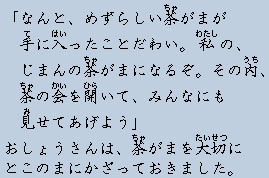 「なんと、めずらしい茶がまが
手に入ったことだわい。私の、
じまんの茶がまになるぞ。その内、
茶の会を開いて、みんなにも
見せてあげよう」
おしょうさんは、茶がまを大切に
とこのまにかざっておきました。